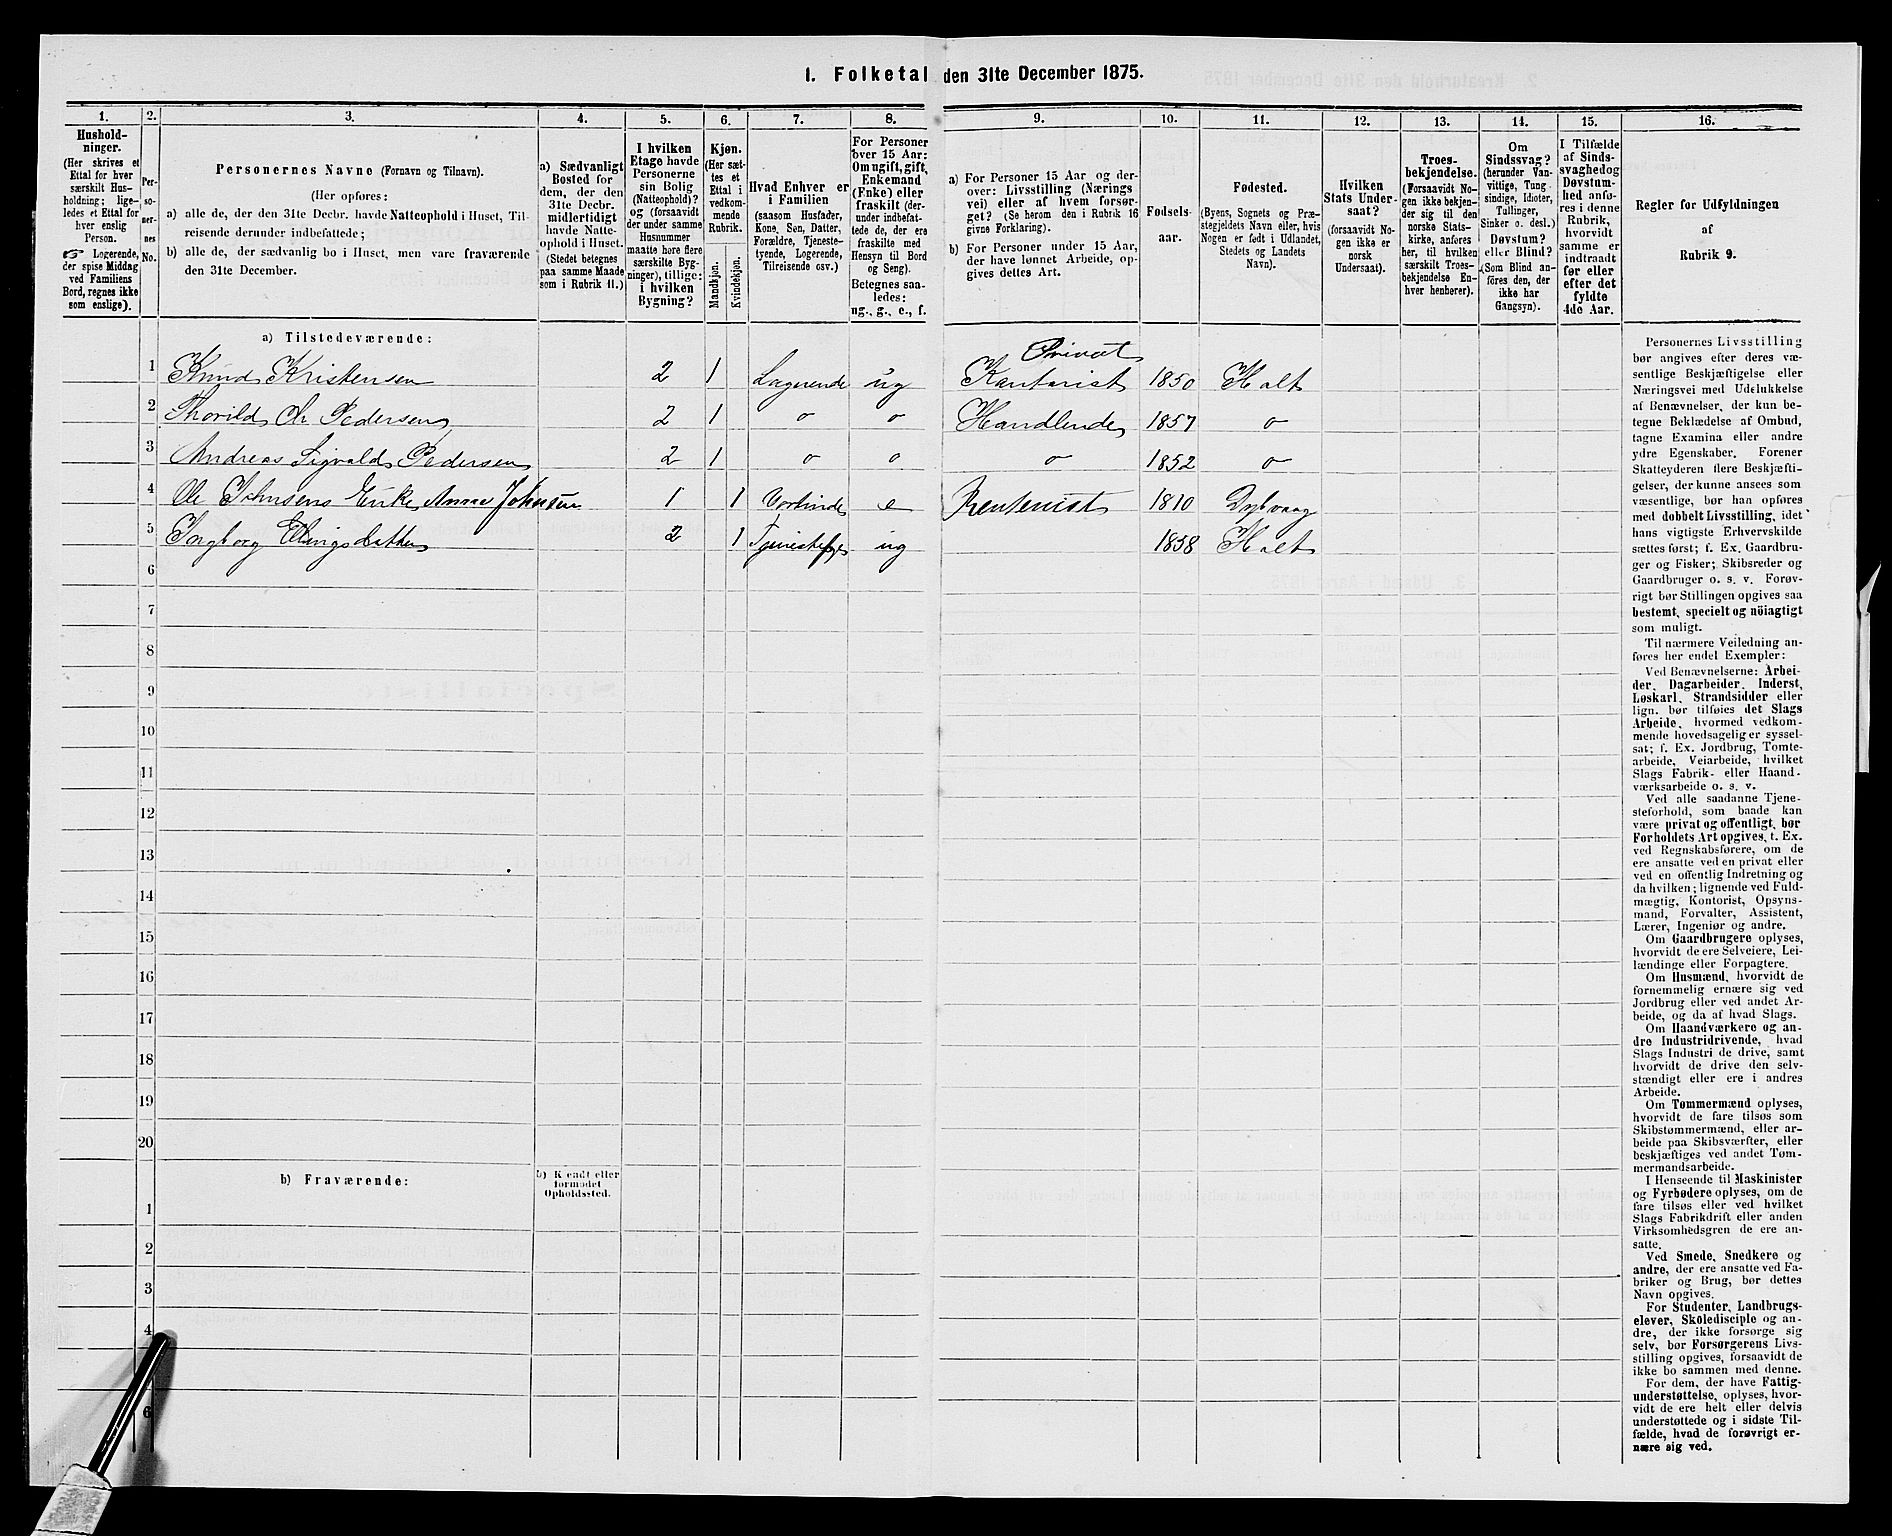 1. Folketal den 31te December 1875.
1.
Hushold-
ninger.
(Her skrives et
Ettal for hver
særskilt Hus-
holdning; lige-
ledes et Ettal for
hver enslig
Person.
☞ Logerende,
der spise Middag
ved Familiens
Bord, regnes ikke
som enslige).
2.
Per-
so-
ner-
nes
No.
3.
Personernes Navne (Fornavn og Tilnavn).
(Her opføres:
a) alle de, der den 31te Decbr. havde Natteophold i Huset, Til-
reisende derunder indbefattede;
b) alle de, der sædvanlig bo i Huset, men vare fraværende
den 31te December.
4.
a) Sædvanligt
Bosted for
dem, der den
31te Decbr.
midlertidigt
havde Natte-
ophold i Huset.
(Stedet betegnes
paa samme Maade
som i Rubrik 11.)
5.
I hvilken
Etage havde
Personerne
sin Bolig
(Natteophold)?
og (forsaavidt
der under samme
Husnummer
maatte høre flere
særskilte Byg-
ninger), tillige:
i hvilken
Bygning?
6.
Kjøn.
(Her sæt-
tes et
Ettal i
vedkom-
mende
Rubrik.
Mandkjøn.
Kvindekjøn.
7.
Hvad Enhver er
i Familien
(saasom Husfader,
Kone, Søn, Datter,
Forældre, Tjeneste-
tyende, Logerende,
Tilreisende osv.)
8.
For Personer
over 15 Aar:
Om ugift, gift,
Enkemand
(Enke) eller
fraskilt (der-
under indbefat-
tede de, der ere
fraskilte med
Hensyn til Bord
og Seng).
Betegnes saa-
ledes:
ug., g., e., f.
9.
a) For Personer 15 Aar og der-
over: Livsstilling (Nærings
vei) eller af hvem forsør-
get? (Se herom den i Rubrik 16
givne Forklaring).
b) For Personer under 15 Aar,
der have lønnet Arbeide, op-
gives dettes Art.
10.
Fødsels-
aar.
11.
Fødested.
(Byens, Sognets og Præ-
stegjeldets Navn eller, hvis
Nogen er født i Udlandet,
Stedets og Landets
Navn).
12.
Hvilken
Stats Under-
saat?
(forsaavidt No-
gen ikke er
norsk
Undersaat).
13.
Troes-
bekjendelse.
(Forsaavidt No-
gen ikke bekjen-
der sig til den
norske Stats-
kirke, anføres
her, til hvilken
særskilt Troes-
bekjendelse En-
hver henhører).
14.
Om
Sindssvag?
(herunder Van-
vittige, Tung
sindige, Idioter,
Tullinger,
Sinker o. desl.)
Døvstum?
eller Blind?
(Som Blind an-
føres den, der
ikke har
Gangsyn).
15.
I Tilfælde
af Sinds-
svaghed og
Døvstum-
hed anfø-
res i denne
Rubrik,
hvorvidt
samme er
indtraadt
før eller
efter det
fyldte
4de Aar.
16.
Regler for Udfyldningen
af
Rubrik 9.
a) Tilstedeværende:
Privat
1 Knud Kristensen 2 1 Logerende ug Kontorist 1850 Holt
2 Thorild Chr Pedersen 2 1 o o Handlende 1857 o
3 Andreas Sigvald Pedersen 2 1 o o o 1852 o
4 Ole Johnsens Enke Anne Johnsen 1 1 e Rentenist 1810 Dybvaag
5 Ingborg Elingsdatter 2 1 ug 1858 Holt
6
7
8
9
10
11
12
13
14
15
16
17
18
19
20
b) Fraværende:
b) Kjendt eller
formodet
Opholdssted.
1
2
3
4
6
Personernes Livsstilling
bør angives efter deres væ-
sentlige Beskjæftigelse eller
Næringsvei med Udelukkelse
af Benævnelser, der kun be-
tegne Beklædelse af Ombud,
tagne Examina eller andre
ydre Egenskaber. Forener
Skatteyderen flere Beskjæfti-
gelser, der kunne ansees som
væsentlige, bør han opføres
med dobbelt Livsstilling, idet
hans vigtigste Erhvervskilde
sættes først; f. Ex. Gaardbru-
ger og Fisker; Skibsreder og
Gaardbruger o. s. v. Forøv-
rigt bør Stillingen opgives saa
bestemt, specielt og nöiagtigt
som muligt.
Til nærmere Veiledning an-
føres her endel Exempler:
Ved Benævnelserne: Arbei-
der, Dagarbeider, Inderst,
Løskarl, Strandsidder eller
lign. bør tilføies det Slags
Arbeide, hvormed vedkom-
mende hovedsagelig er syssel-
sat; f. Ex. Jordbrug, Tomte-
arbeide, Veiarbeide, hvilket
Slags Fabrik- eller Haand-
værksarbeide o. s. v.
Ved alle saadanne Tjene-
steforhold, som baade kan
være privat og offentligt, bør
Forholdets Art opgives, t. Ex.
ved Regnskabsførere, om de
ere ansatte ved en privat eller
ved en offentlig Indretning og
da hvilken; lignende ved Fuld-
mægtig, Kontorist, Opsyns-
mand, Forvalter, Assistent,
Lærer, Ingeniør og andre.
Om Gaardbrugere oplyses,
hvorvidt de ere Selveiere, Lei-
lændinge eller Forpagtere.
Om Husmænd, hvorvidt de
fornemmelig ernære sig ved
Jordbrug eller ved andet Ar-
beide, og da af hvad Slags.
Om Haandværkere og an-
dre Industridrivende, hvad
Slags Industri de drive, samt
hvorvidt de drive den selv-
stændigt eller ere i andres
Arbeide.
Om Tømmermænd oplyses,
hvorvidt de fare tilsøs som
Skibstømmermænd, eller ar-
beide paa Skibsværfter, eller
beskjæftiges ved andet Tøm-
mermandsarbeide.
I Henseende til Maskinister
og Fyrbødere oplyses, om de
fare tilsøs eller ved hvilket
Slags Fabrikdrift eller anden
Virksomhedsgren de ere an-
satte.
Ved Smede, Snedkere og
andre, der ere ansatte ved Fa-
briker og Brug, bør dettes
Navn opgives.
For Studenter, Landbrugs-
elever, Skoledisciple og an-
dre, der ikke forsørge sig
selv, bør Forsørgerens Livs-
stilling opgives, forsaavidt de
ikke bo sammen med denne.
For dem, der have Fattig-
understøttelse, oplyses, hvor-
vidt de ere helt eller delvis
understøttede og i sidste Til-
fælde, hvad de forøvrigt er-
nære sig ved.